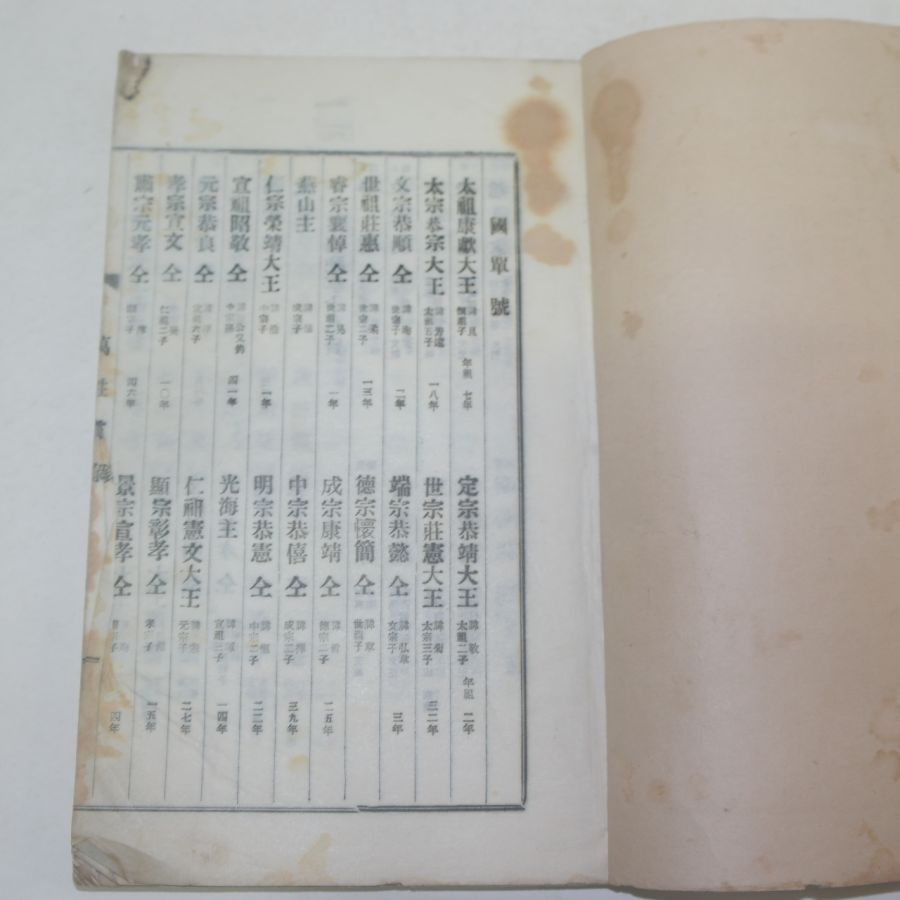 國單號
太祖康獻大王 諱旦 桓祖子 年祖 七年
定宗恭靖大王 諱敬 太祖二子 年祖 二年
太宗恭宗大王 諱芳遠 太祖五子 一八年
世宗莊憲大王 諱祹 太宗三子 三二年
文宗恭順 仝 世宗子 二年
端宗恭懿 仝 諱弘暐 文宗子 三年
世祖莊惠 仝 諱柔 世宗二子 一三年
德宗懷簡 仝 諱 世祖子
睿宗襄悼 仝 諱晃 世祖二子 一年
成宗康靖 仝 諱 德宗二子 二五年
燕山主 諱 成宗子
中宗恭僖 仝 諱懌 成宗二子 三九年
仁宗榮靖大王 諱 中宗子 一年
明宗恭憲 仝 諱 中宗二子 二二年
宣祖昭敬 仝 諱 中宗孫 四一年
光海主 諱 宣祖二子 一四年
元宗恭良 仝 諱 宣祖六子
仁祖憲文大王 諱 元宗子 二七年
孝宗宣文 仝 仁祖二子 一〇年
顯宗彰孝 仝 孝宗子 一五年
肅宗元孝 仝 四六年
景宗宣孝 仝 四年
萬姓